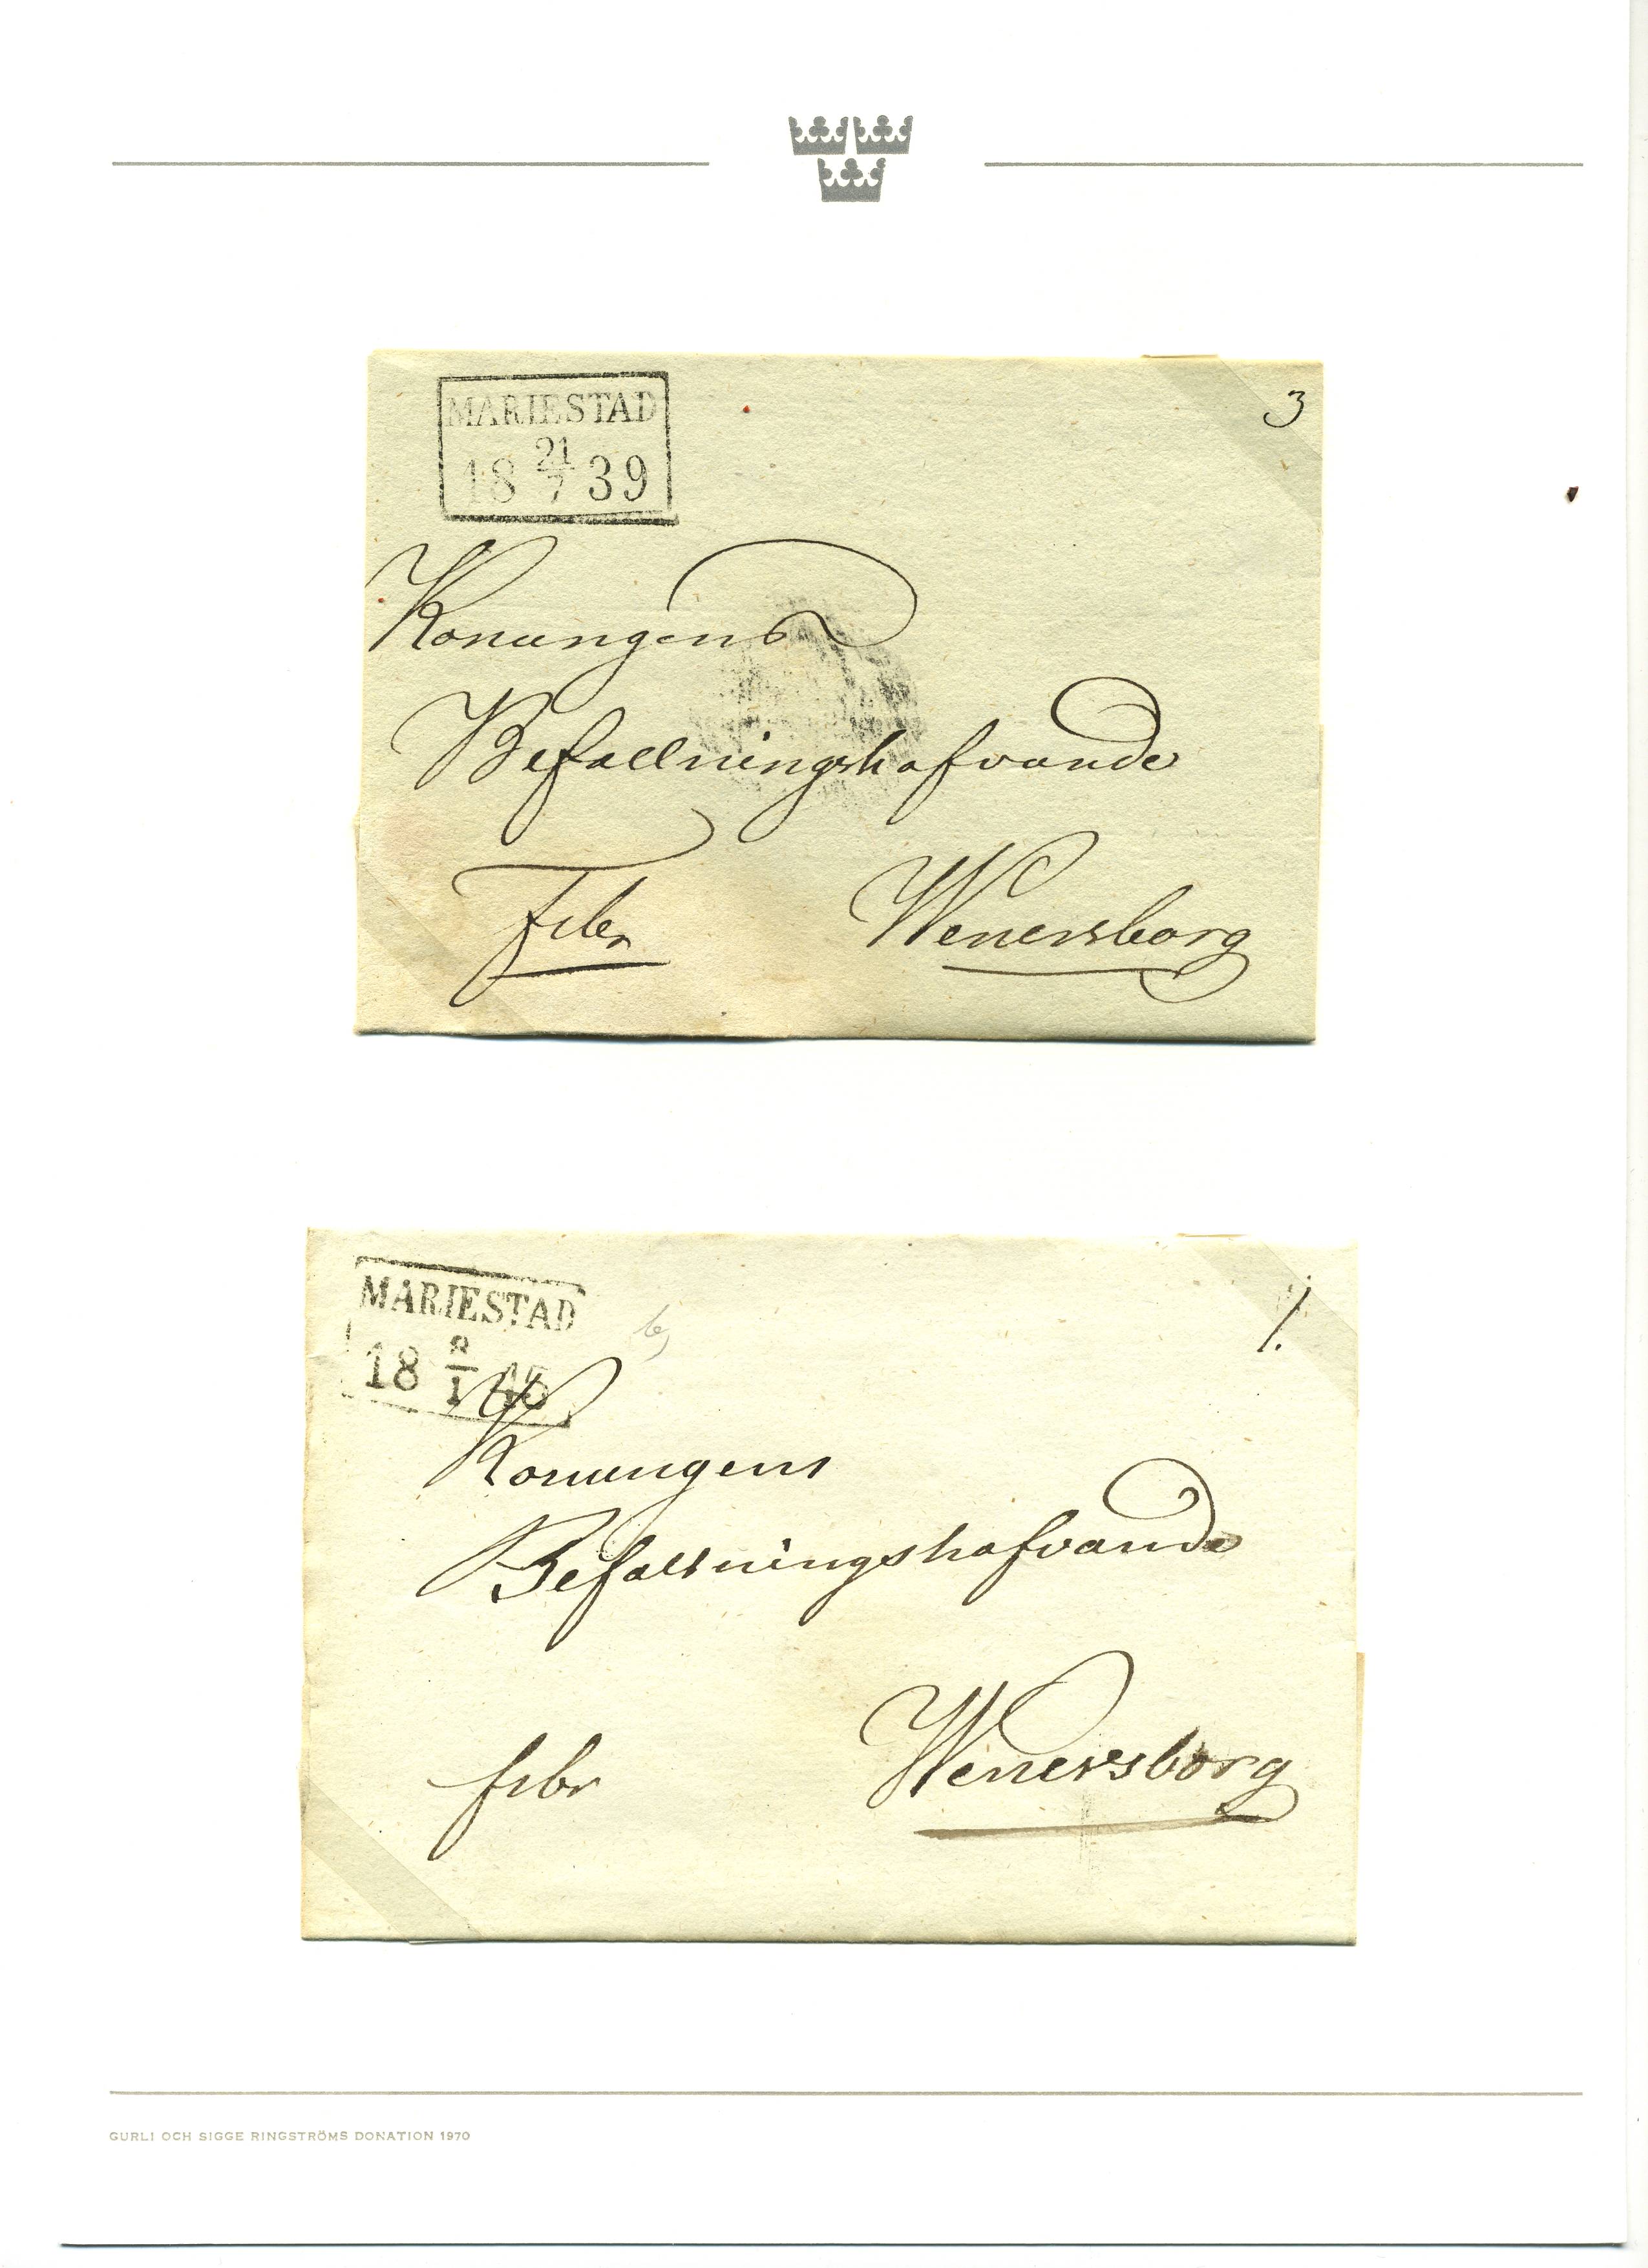 MARIESTAD
18 21/7 39
3
Konungens
Befallningshafvande
frbr
Wenersborg
MARIESTAD
18 8/1 45
1.
Konungens
Befallningshafvande
frbr
Wenersborg
GURLI OCH SIGGE RINGSTRÖMS DONATION 1970